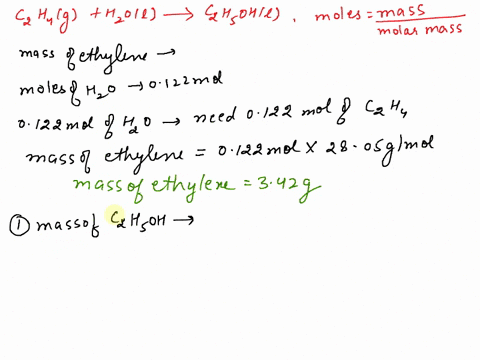 C2H4(g) + H2O(l) → C2H5OH(l) , moles = mass / molar mass
mass of ethylene →
moles of H2O → 0.122 mol
0.122 mol of H2O → need 0.122 mol of C2H4
mass of ethylene = 0.122 mol × 28.05 g/mol
mass of ethylene = 3.42 g
① mass of C2H5OH →